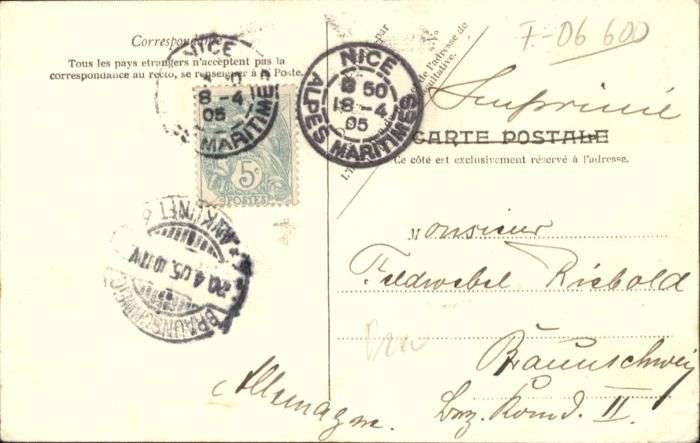 Correspondance
Tous les pays etrangers n'acceptent pas la
correspondance au recto, se renseigner à la Poste.
NICE
8-4
05
MARITIMES
NICE
8 50
18-4
05
ALPES MARITIMES
5c
POSTES
F-06 600
Imprimé
CARTE POSTALE
Ce côté est exclusivement réservé à l'adresse.
Monsieur
Feldwebel Riebold
Braunschweig
Allemagne.
II
20.4.05.
BRAUNSCHWEIG
ANKUNFT